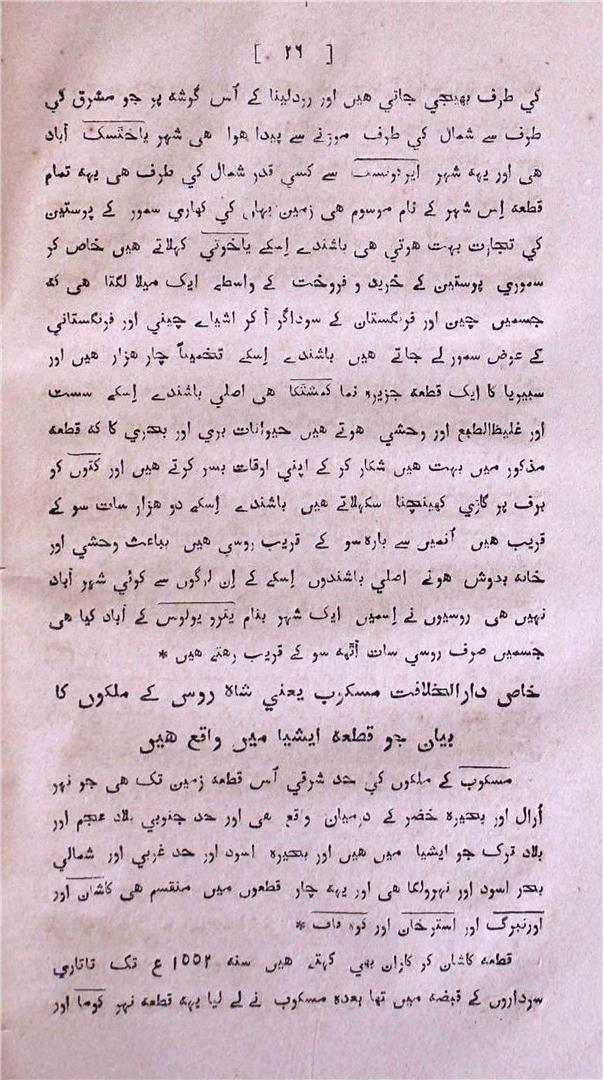 [ ٢٦ ]
کي طرف بھیجي جاتي ھیں اور رودلینا کے اُس گوشہ پر جو مشرق کي
طرف سے شمال کي طرف موڑنے سے پیدا ھوا ھی شہر یاختسک آباد
ھی اور یہہ شہر ایرکوتسک سے کسي قدر شمال کي طرف ھی یہہ تمام
قطعہ اِس شہر کے نام موسوم ھی زمین یہاں کي کھاري سمور کے پوستین
کي تجارت بہت ھوتي ھی باشندے اِسکے یاخوتي کہلاتے ھیں خاص کر
سموري پوستین کے خرید و فروخت کے واسطے ایک میلا لگتا ھی کہ
جسمیں چین اور فرنگستان کے سوداگر آ کر اشیاے چیني اور فرنگستاني
کے عوض سمور لے جاتے ھیں باشندے اِسکے تخمیناً چار ھزار ھیں اور
سیبریا کا ایک قطعہ جزیرہ نما کمشتکا ھی اصلي باشندے اِسکے سست
اور غلیظ‌الطبع اور وحشي ھوتے ھیں حیوانات بري اور بحري کا کہ قطعہ
مذکور میں بہت ھیں شکار کر کے اپني اوقات بسر کرتے ھیں اور کتوں کو
برف پر گاڑي کھینچنا سکھلاتے ھیں باشندے اِسکے دو ھزار سات سو کے
قریب ھیں اُنمیں سے بارہ سو کے قریب روسي ھیں بباعث وحشي اور
خانہ بدوش ھونے اصلي باشندوں اِسکے کے اِن لوگوں سے کوئي شہر آباد
نہیں ھی روسیوں نے اِسمیں ایک شہر بنام پترو پولوس کے آباد کیا ھی
جسمیں صرف روسي سات آٹھہ سو کے قریب رھتے ھیں *
خاص دارالخلافت مسکوب یعني شاہ روس کے ملکوں کا
بیان جو قطعہ ایشیا میں واقع ھیں
مسکوب کے ملکوں کي حد شرقي اُس قطعہ زمین تک ھی جو نہر
اُرال اور بحیرہ خضر کے درمیان واقع ھی اور حد جنوبي بلاد عجم اور
بلاد ترک جو ایشیا میں ھیں اور بحیرہ اسود اور حد غربي اور شمالي
بحر اسود اور نہرولگا ھی اور یہہ چار قطعوں میں منقسم ھی کاشان اور
اورنبرگ اور استرخان اور کوہ قاف *
قطعہ کاشان کو کازان بھي کہتے ھیں سنہ ١٥٥٢ ع تک تاتاري
سرداروں کے قبضہ میں تھا بعدہ مسکوب نے لے لیا یہہ قطعہ نہر کوما اور